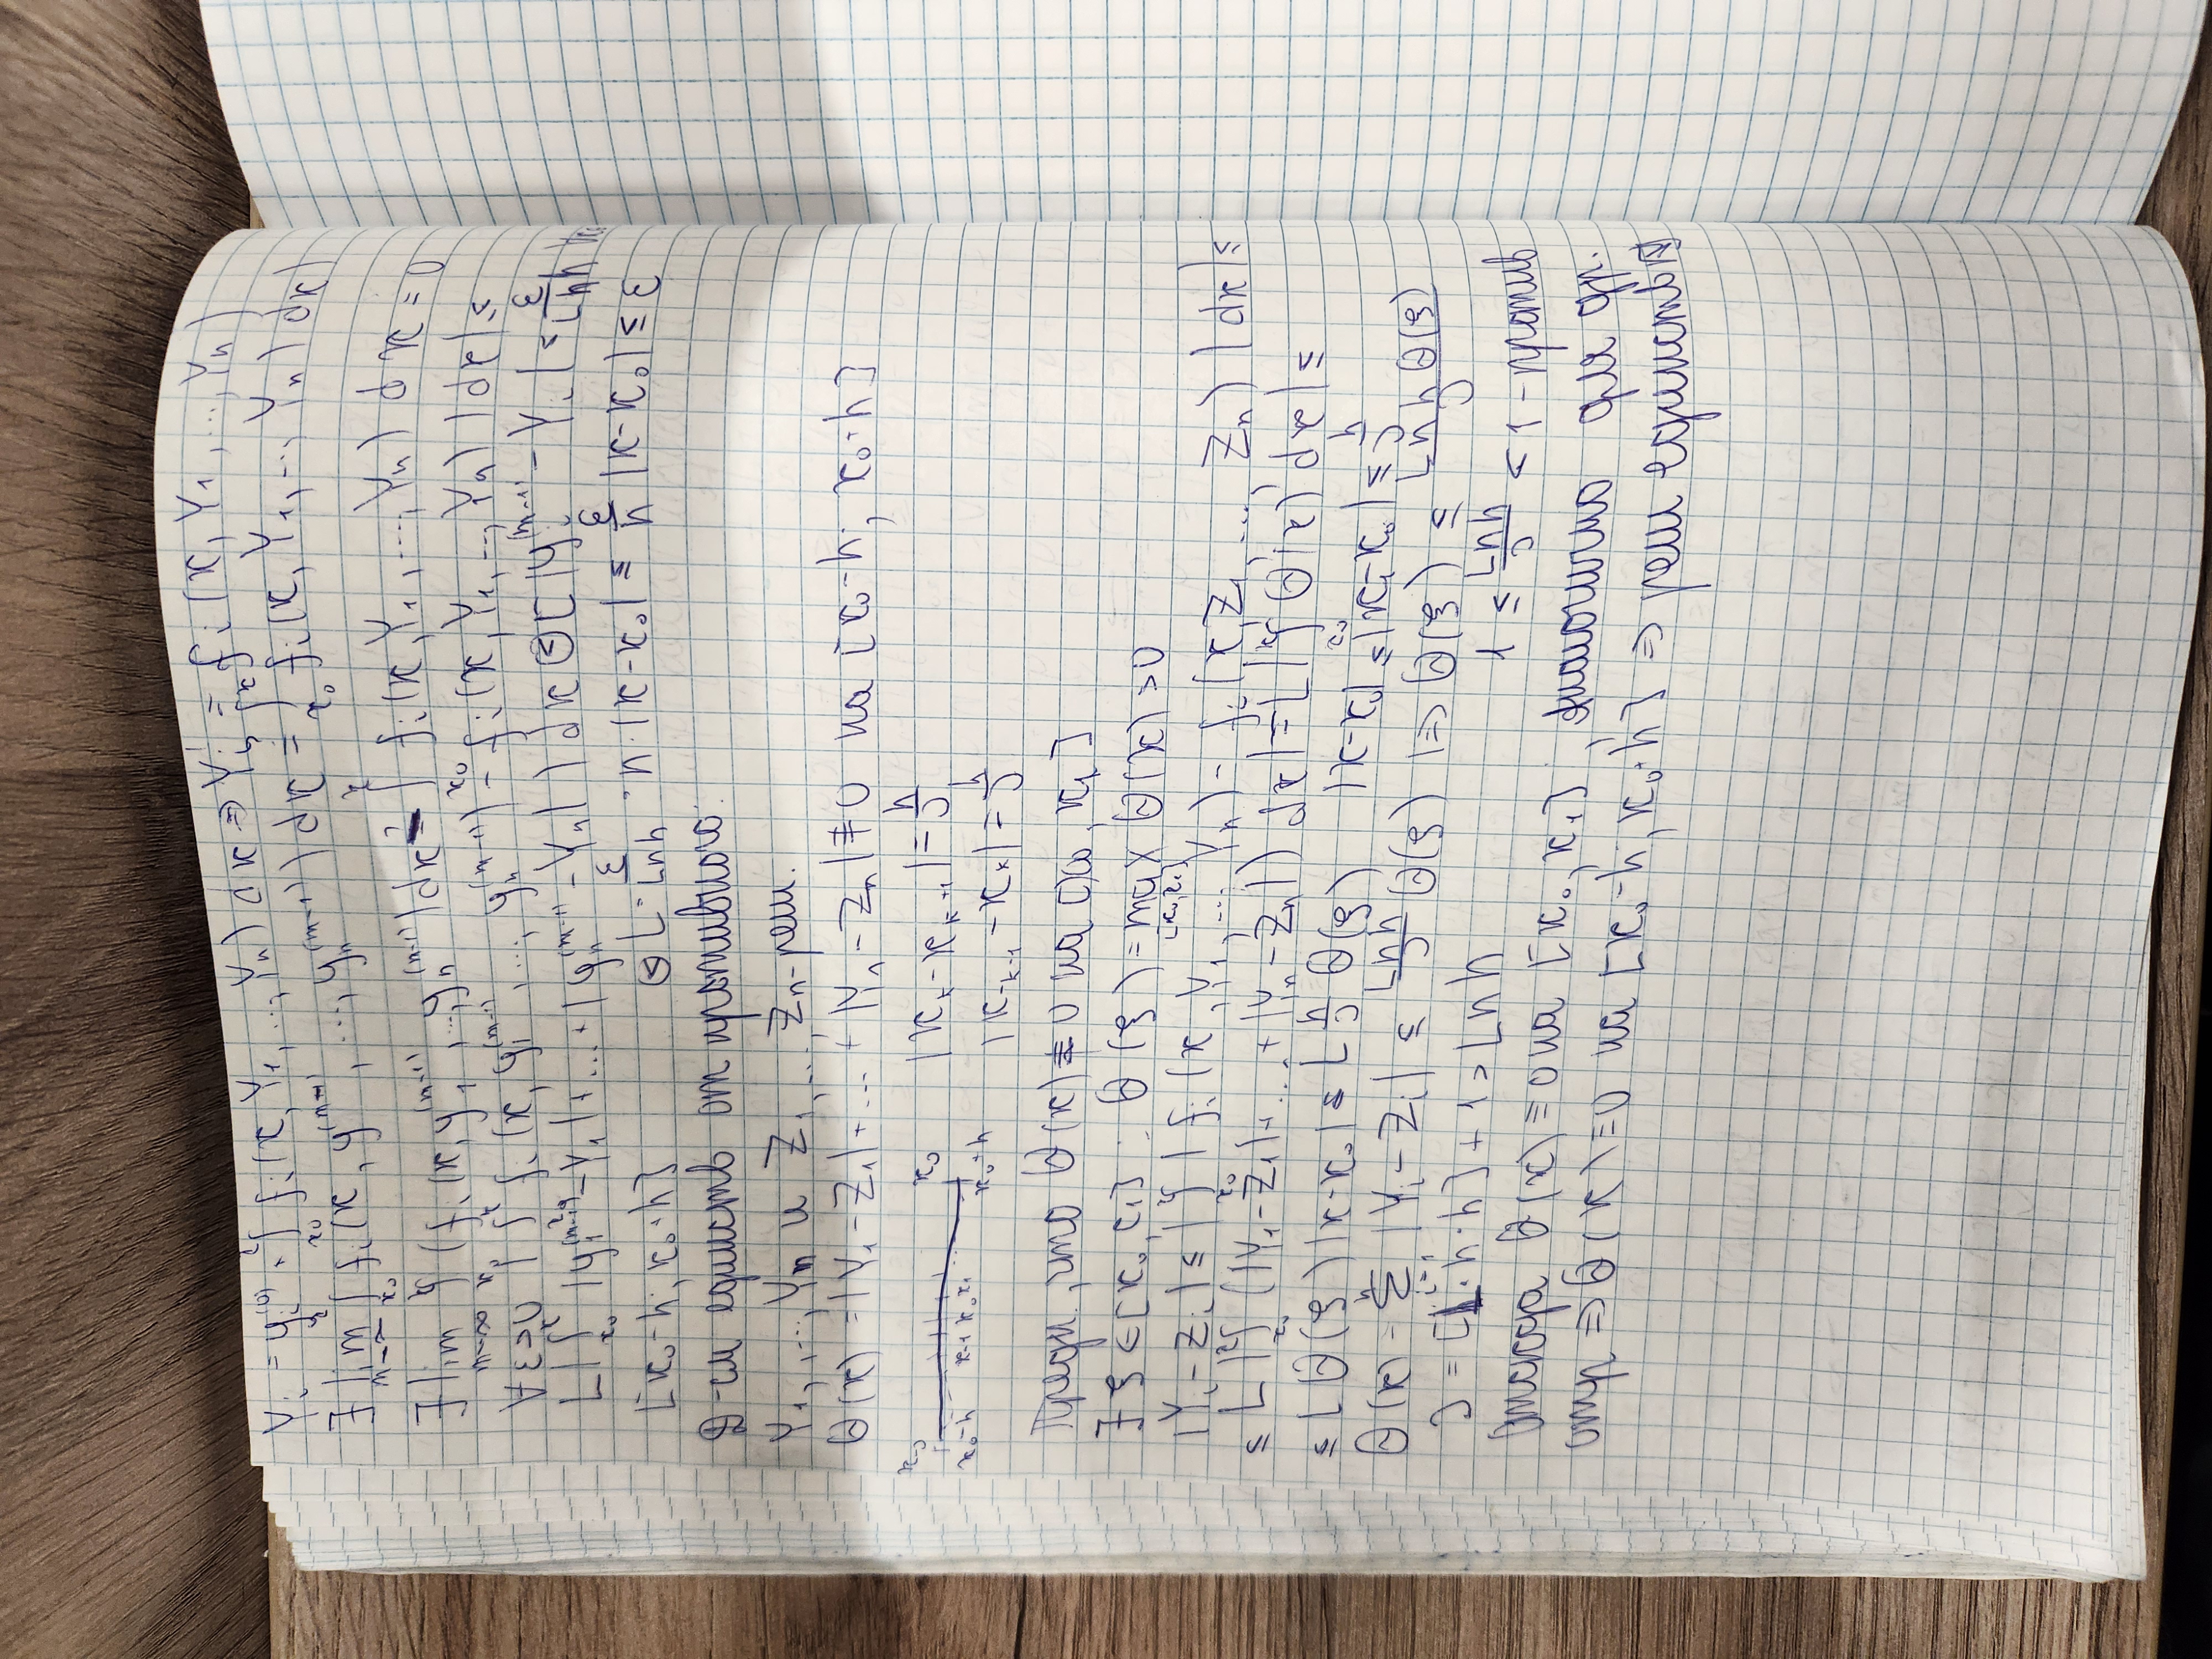 Y_i = y_i^{(0)} + ∫_{x_0}^{x} f_i (x, Y_1, ..., Y_n) dx ⇒ Y_i' = f_i (x, Y_1, ..., Y_n)
∃ lim_{m→∞} ∫_{x_0}^{x} f_i (x, y_1^{(m-1)}, ..., y_n^{(m-1)}) dx = ∫_{x_0}^{x} f_i (x, Y_1, ..., Y_n) dx)
∃ lim_{m→∞} ∫_{x_0}^{x} (f_i (x, y_1^{(m-1)}, ..., y_n^{(m-1)}) dx - ∫_{x_0}^{x} f_i (x, Y_1, ..., Y_n) dx = 0
∀ ε>0 |∫_{x_0}^{x} f_i (x, y_1^{(m-1)}, ..., y_n^{(m-1)}) - f_i (x, Y_1, ..., Y_n) | dx | ≤
L | ∫_{x_0}^{x} |y_1^{(m-1)} - Y_1| + ... + |y_n^{(m-1)} - Y_n| ) dx ⊜ [ |y_i^{(m-1)} - Y_i | < ε/Lnh
[x_0-h, x_0+h] ⊜ L · ε/Lnh · n · |x-x_0| = ε/h |x-x_0| ≤ ε
Д-ем единств от противного.
Y_1, ..., Y_n и Z_1, ..., Z_n - реш.
θ(x) = |Y_1 - Z_1| + ... + |Y_n - Z_n| ≢ 0 на [x_0-h, x_0+h]
|x_k - x_{k+1}| = h/J
x_0-h x_{-1} x_0 x_1 x_0+h |x_{-k-1} - x_{-k}| = h/J
Предп, что θ(x) ≢ 0 на [x_0, x_1]
∃ ξ ∈ [x_0, x_1] : θ(ξ) = max_{[x_0, x_1]} θ(x) > 0
|Y_i - Z_i| ≤ | ∫_{x_0}^{x} | f_i (x, Y_1, ..., Y_n) - f_i (x, Z_1, ..., Z_n) | dx | ≤
≤ L | ∫_{x_0}^{x} (|Y_1 - Z_1| + ... + |Y_n - Z_n|) dx | = L | ∫_{x_0}^{x} θ(x) dx | ≤
≤ L θ(ξ) |x-x_0| ≤ L h/J θ(ξ) |x-x_0| ≤ |x_1-x_0| ≤ h/J
θ(x) = Σ_{i=1}^{n} |Y_i - Z_i| ≤ Lnh/J θ(ξ) |⇒ θ(ξ) ≤ Lnh/J θ(ξ)
J = [L·n·h] + 1 > Lnh 1 ≤ Lnh/J < 1 - против
отсюда θ(x) ≡ 0 на [x_0, x_1], аналогично для др.
отр ⇒ θ(x) ≡ 0 на [x_0-h, x_0+h] ⇒ реш единств